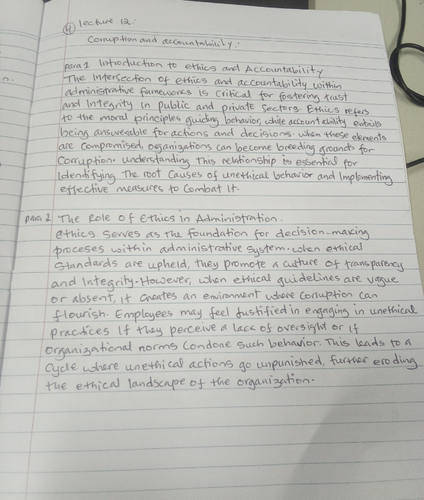 (4) lecture 12.
Corruption and accountability.
para 1 Introduction to ethics and Accountability
The Intersection of ethics and accountability within
administrative frameworks is critical for fostering trust
and Integrity in public and private sectors. Ethics refers
to the moral principles guiding behavior, while accountability entails
being answerable for actions and decisions. when these elements
are compromised, organisations can become breeding grounds for
Corruption. understanding This relationship is essential for
Identifying The root Causes of unethical behavior and Implementing
effective measures to Combat it.
para 2 The Role of Ethics In Administration.
ethics Serves as the foundation for decision-making
proceses within administrative system. when ethical
Standards are upheld, they promote a culture of transparency
and Integrity. However, when ethical guidelines are vague
or absent, it Creates an environment where Corruption Can
flourish. Employees may feel Justified in engaging in unethical
practices If they perceive a lack of oversight or If
Organizational norms Condone Such behavior. This leads to a
Cycle where unethical actions go unpunished, further eroding
the ethical landscape of the organization.